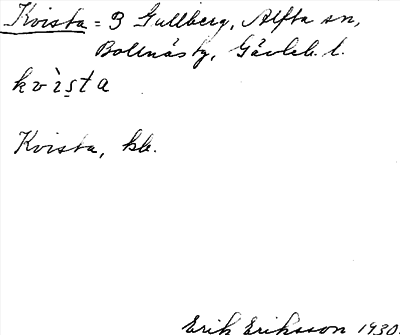 Kvista = 3 Gullberg, Alfta sn,
Bollnäs tg, Gävleb. l.
kvìsta
Kvista, kb.
Erik Eriksson 1930.